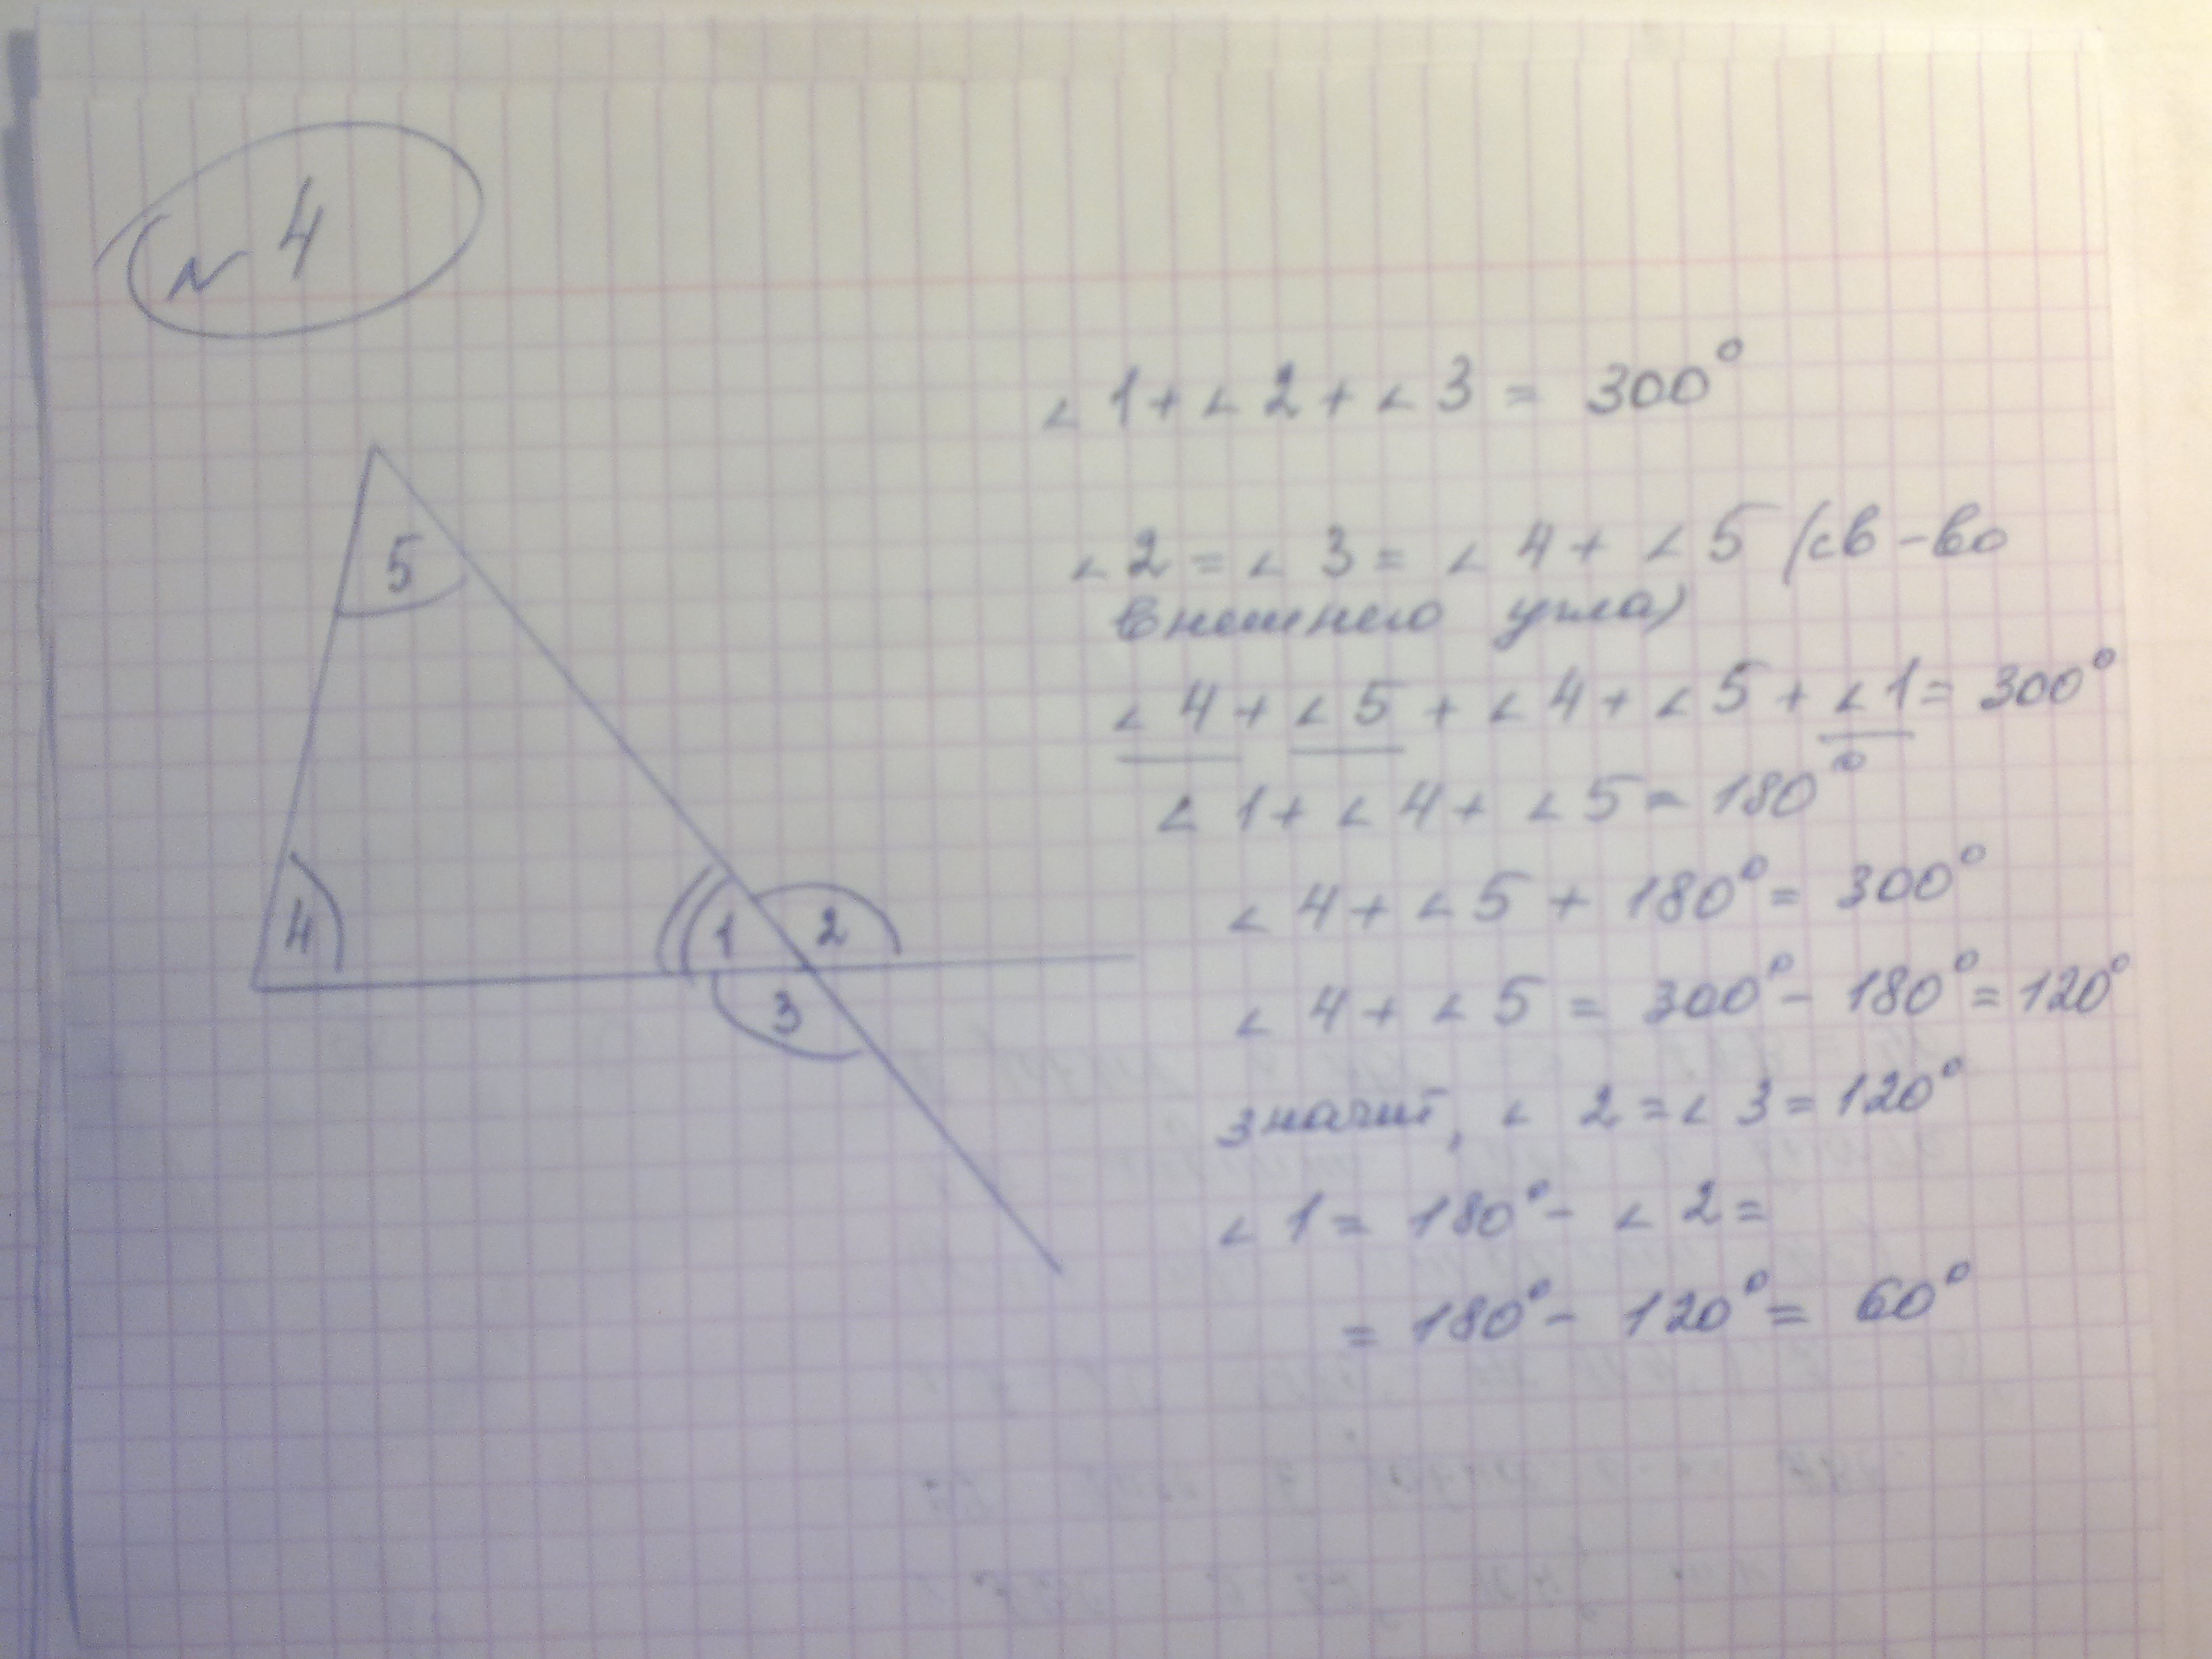 N 4
∠1 + ∠2 + ∠3 = 300°
∠2 = ∠3 = ∠4 + ∠5 (св-во
внешнего угла)
∠4 + ∠5 + ∠4 + ∠5 + ∠1 = 300°
∠1 + ∠4 + ∠5 = 180°
∠4 + ∠5 + 180° = 300°
∠4 + ∠5 = 300° - 180° = 120°
значит, ∠2 = ∠3 = 120°
∠1 = 180° - ∠2 =
= 180° - 120° = 60°
5
4
1
2
3